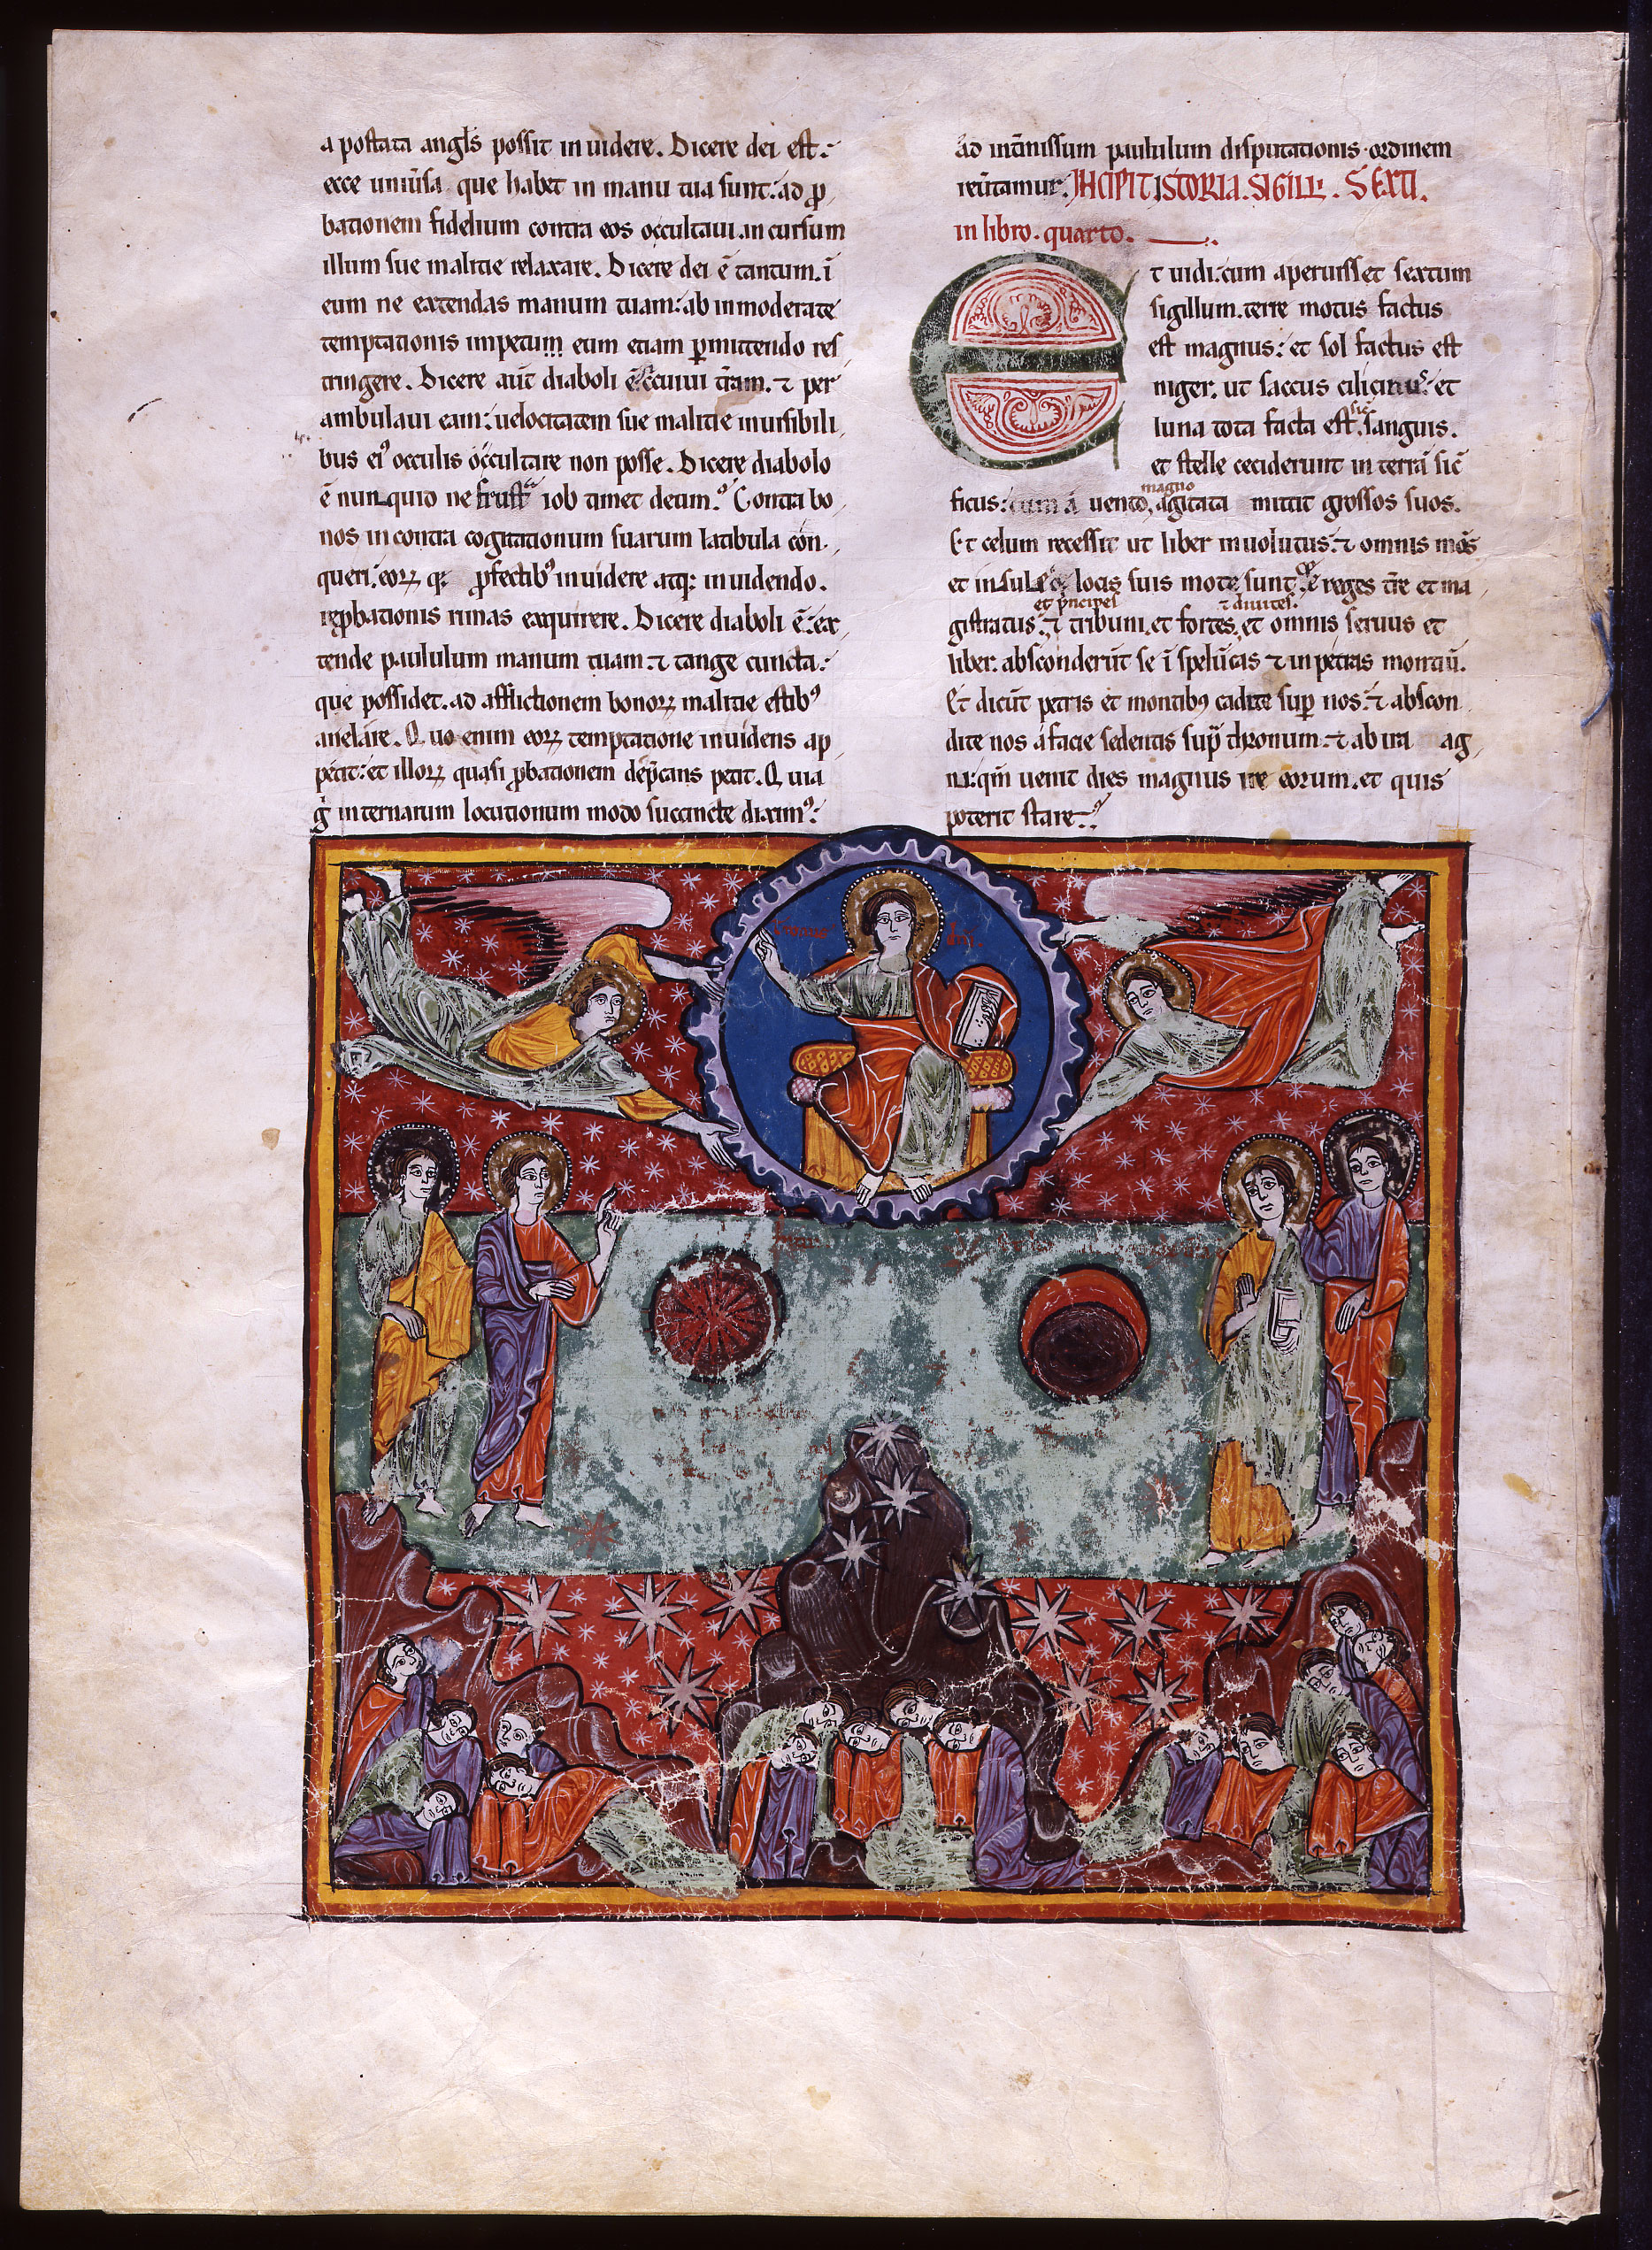 a postata angl's possit in uidere. Dicere dei est:
ecce uniũsa que habet in manu tua sunt: ad ꝓ
bationem fidelium contra eos occultaui. in cursum
illum sue malitie relaxare. Dicere dei ẽ tantum. ĩ
eum ne extendas manum tuam: ab inmoderate
temptationis impetum eum etiam ꝑmittendo res
tringere. Dicere aũt diaboli ẽ circuiui t̃ram. ⁊ per
ambulaui eam: uelocitatem sue malitie inuisibili
bus eiꝰ occulis occultare non posse. Dicere diabolo
ẽ nunquid ne frustᵃ iob timet deum. Contra bo
nos in contra cogitationum suarum latibula con
queri. eoꝝ qꝫ ꝓfectibꝰ inuidere atqꝫ inuidendo.
reꝓbationis rimas exquirere. Dicere diaboli ẽ: ex
tende paululum manum tuam. ⁊ tange cuncta:
que possidet. ad afflictionem bonoꝝ malitie estibꝰ
anelare. Quo enim eoꝝ temptatione inuidens ap
petit: et illoꝝ quasi ꝓbationem dep̃cans petit. Quia
g̃ internarum locutionum modo succincte diximꝰ:
ad int̃missum paululum disputationis ordinem
reũtamur. INCIPIT ISTORIA. SIGILLI. SEXTI.
in libro. quarto.
Et uidi. cum aperuisset sextum
sigillum. terre motus factus
est magnus: et sol factus est
niger. ut saccus cilicinus: et
luna tota facta est sic̃ sanguis.
et stelle ceciderunt in terrã sic̃
ficus: cum á uento magno agitata mittit grossos suos.
Et celum recessit ut liber inuolutus: ⁊ omnis mõs
et insule de locis suis mote sunt. reges t̃re et ma
gistratus: et p̃ncipes ⁊ tribuni. et fortes. ⁊ diuites. et omnis seruus et
liber. absconderũt se ĩ speluncas ⁊ in petras montiũ.
Et dicũt petris et montibꝰ cadite suꝑ nos: ⁊ abscon
dite nos á facie sedentis sup̃ thronum: ⁊ ab ira ag
ni: qm̃ uenit dies magnus ire eorum. et quis
poterit stare
dñi.